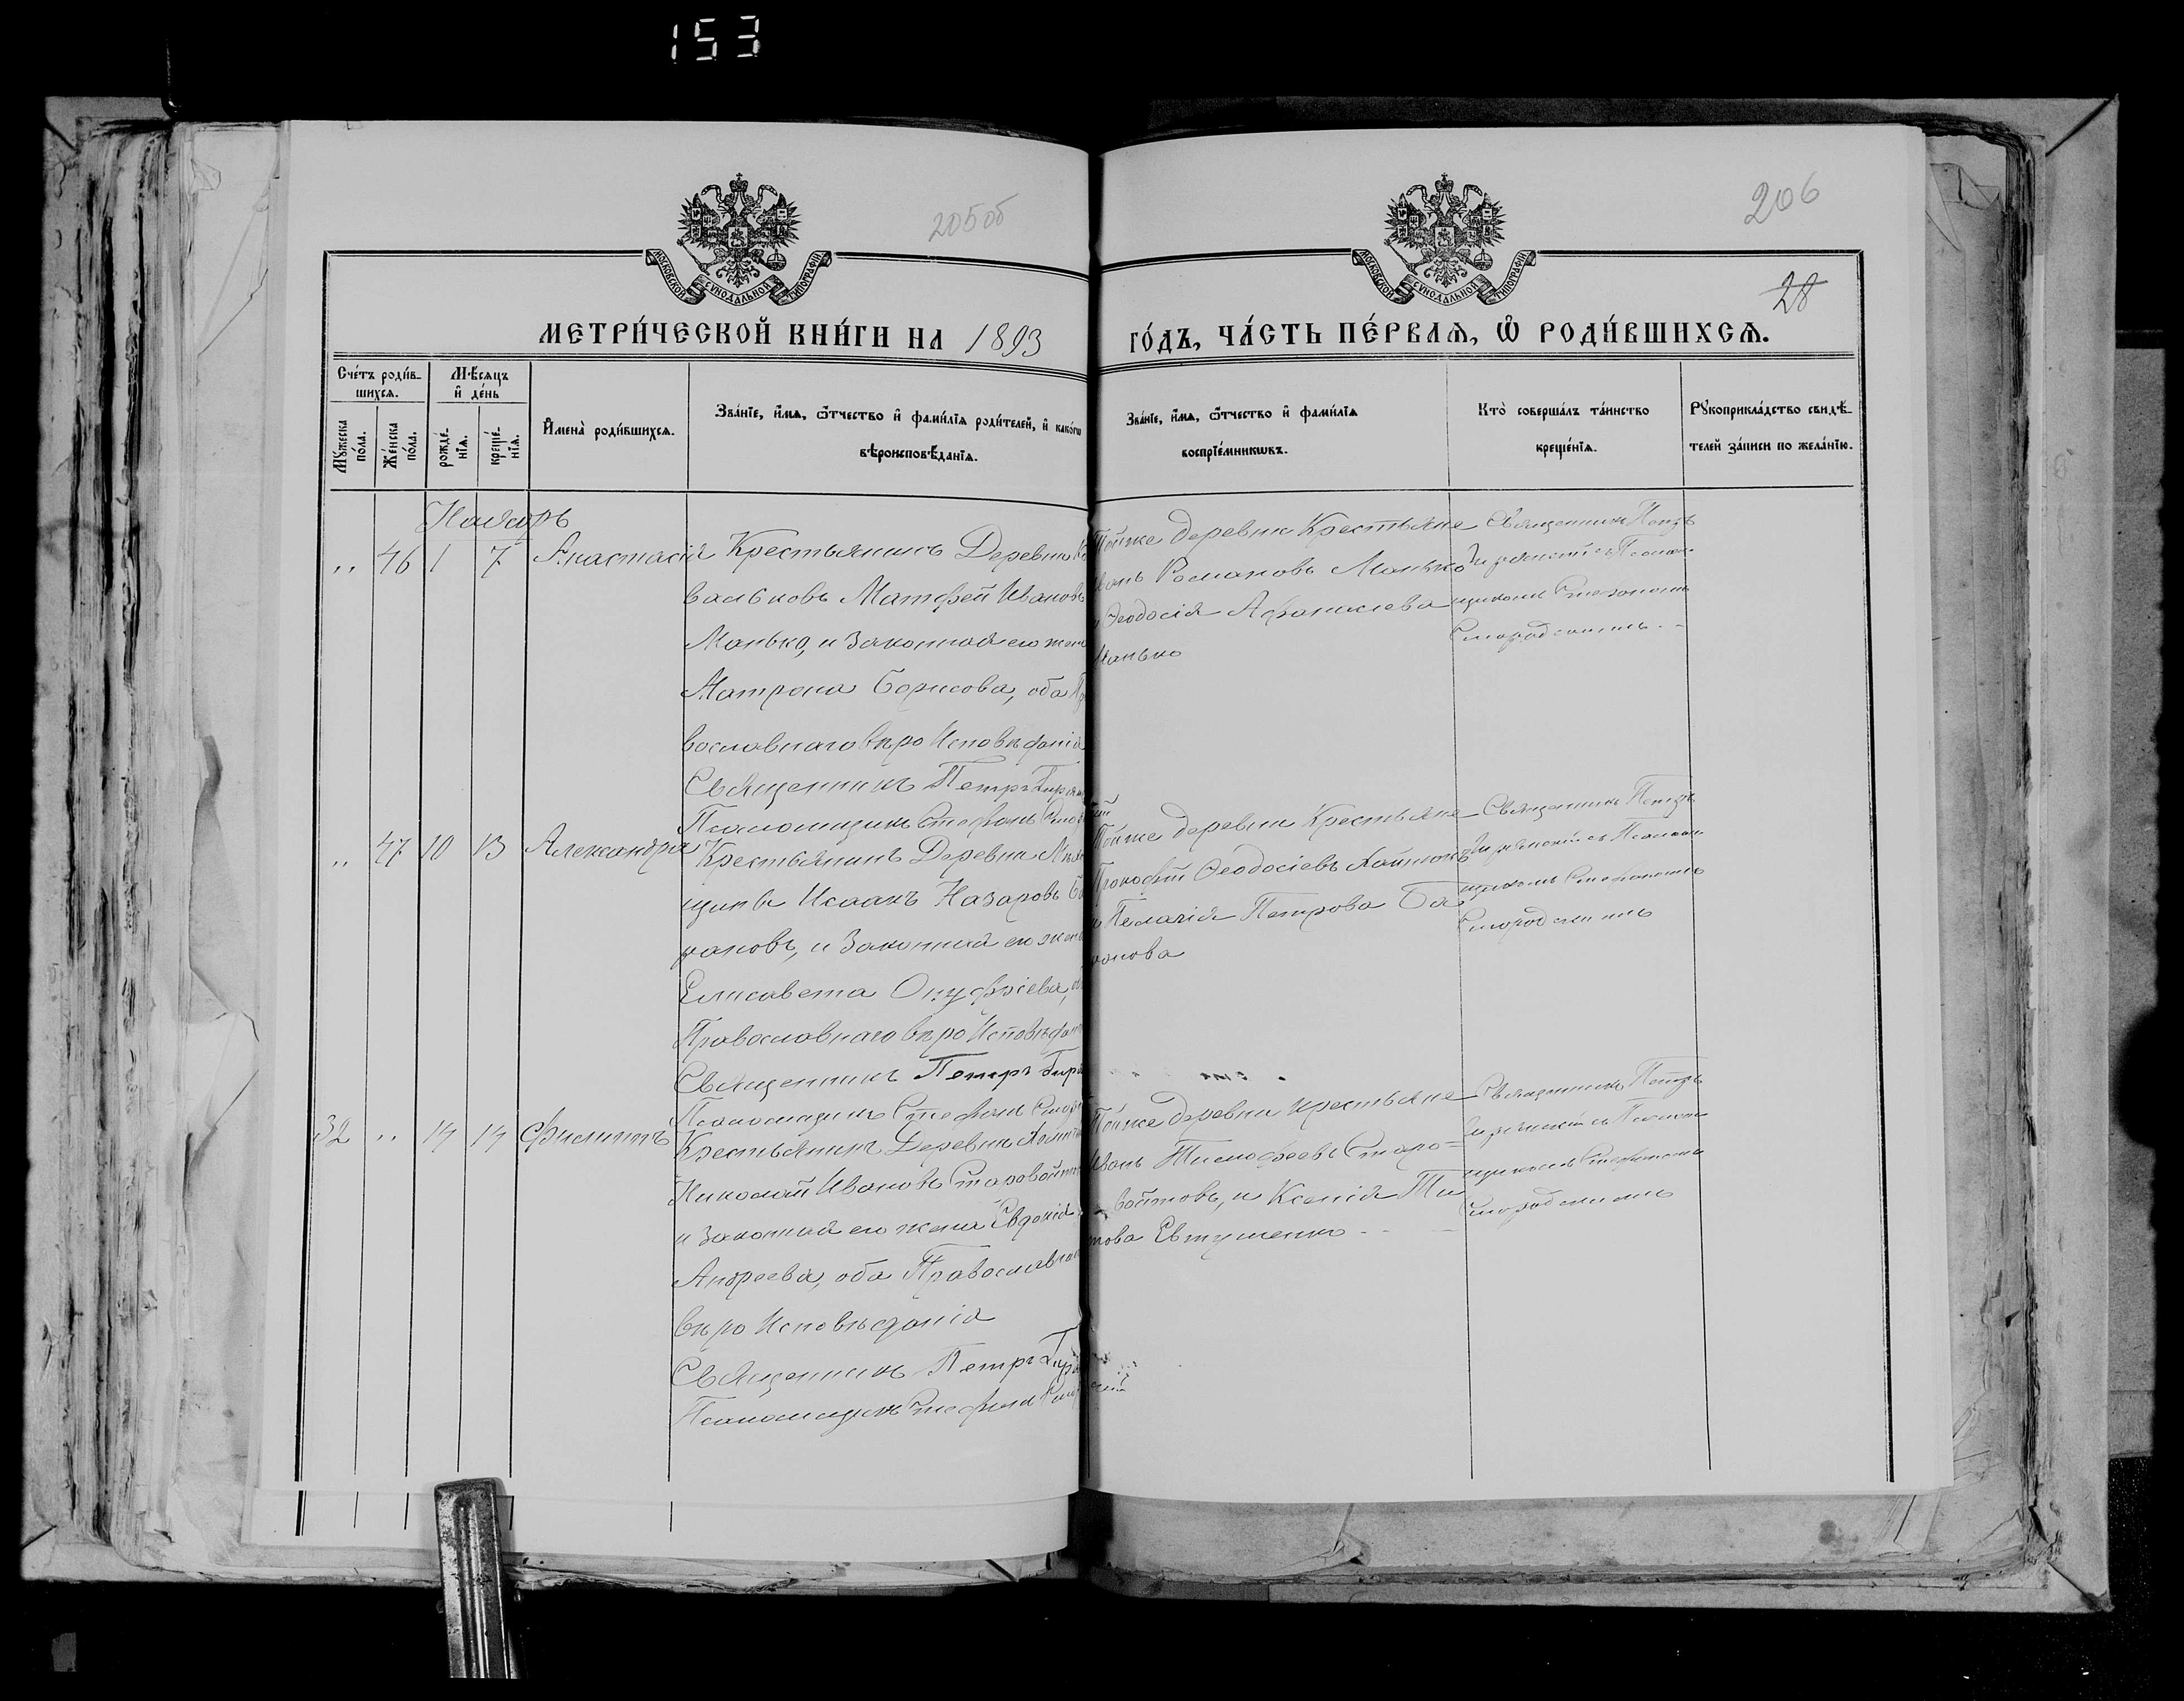 153
205об
206
28
МОСКОВСКОЙ СѴНОДАЛЬНОЙ ТИПОГРАФІИ
МОСКОВСКОЙ СѴНОДАЛЬНОЙ ТИПОГРАФІИ
МЕТРИ́ЧЕСКОЙ КНИ́ГИ НА 1893
ГО́ДЪ, ЧА́СТЬ ПЕ́РВАѦ, Ѿ РОДИ́ВШИХСѦ.
Сче́тъ роди́в-
шихсѧ.
Мѣсѧцъ
и҆ де́нь
Мꙋ́жеска
по́ла.
Же́нска
по́ла.
рожде́-
нїѧ.
креще́-
нїѧ.
И҆мена̀ роди́вшихсѧ.
Зва́нїе, и҆́мѧ, ѻ҆́тчество и҆ фами́лїѧ роди́телей, и҆ како́гѡ
вѣроисповѣ́данїѧ.
Зва́нїе, и҆́мѧ, ѻ҆́тчество и҆ фами́лїѧ
воспрїе́мникѡвъ.
Кто̀ соверша́лъ та́инство
креще́нїѧ.
Рꙋкоприкла́дство свидѣ́-
телей за́писи по жела́нїю.
Ноябрь
" 46 1 7 Анастасія
Крестьянинъ Деревни
Матфей Ивановъ
Манько, и законная его жена
Матрона Борисова, оба Пра
вославнаго вѣро Исповѣданія
Священникъ Петръ
Псаломщикъ Стефанъ
Тойже деревни Крестьяне
Иванъ Романовъ Манько
и Ѳеодосія Афанасіева
Манько
Священникъ Петръ
съ Псалом
щикомъ Стефаномъ
" 47 10 13 Александра
Крестьянинъ Деревни
Исаакъ Назаровъ Ба
рановъ, и Законная его жена
Елисавета Онуфріева,
Православнаго вѣро Исповѣдан
Священникъ Петръ
Псаломщикъ Стефанъ
Тойже деревни Крестьяне
Прокофій Ѳеодосіевъ
и Пелагія Петрова Ба
ранова
Священникъ Петръ
съ Псалом
щикомъ Стефаномъ
32 " 14 14 Филиппъ
Крестьянинъ Деревни
Николай Ивановъ Старовойтов
и Законная его жена Евдокія
Андреева, оба Православнаго
вѣро Исповѣданія
Священникъ Петръ
Псаломщикъ Стефанъ
Тойже деревни крестьяне
Иванъ Тимофеевъ Старо=
войтовъ, и Ксенія Ти
това Евтушенко
Священникъ Петръ
съ Псалом
щикомъ Стефаномъ